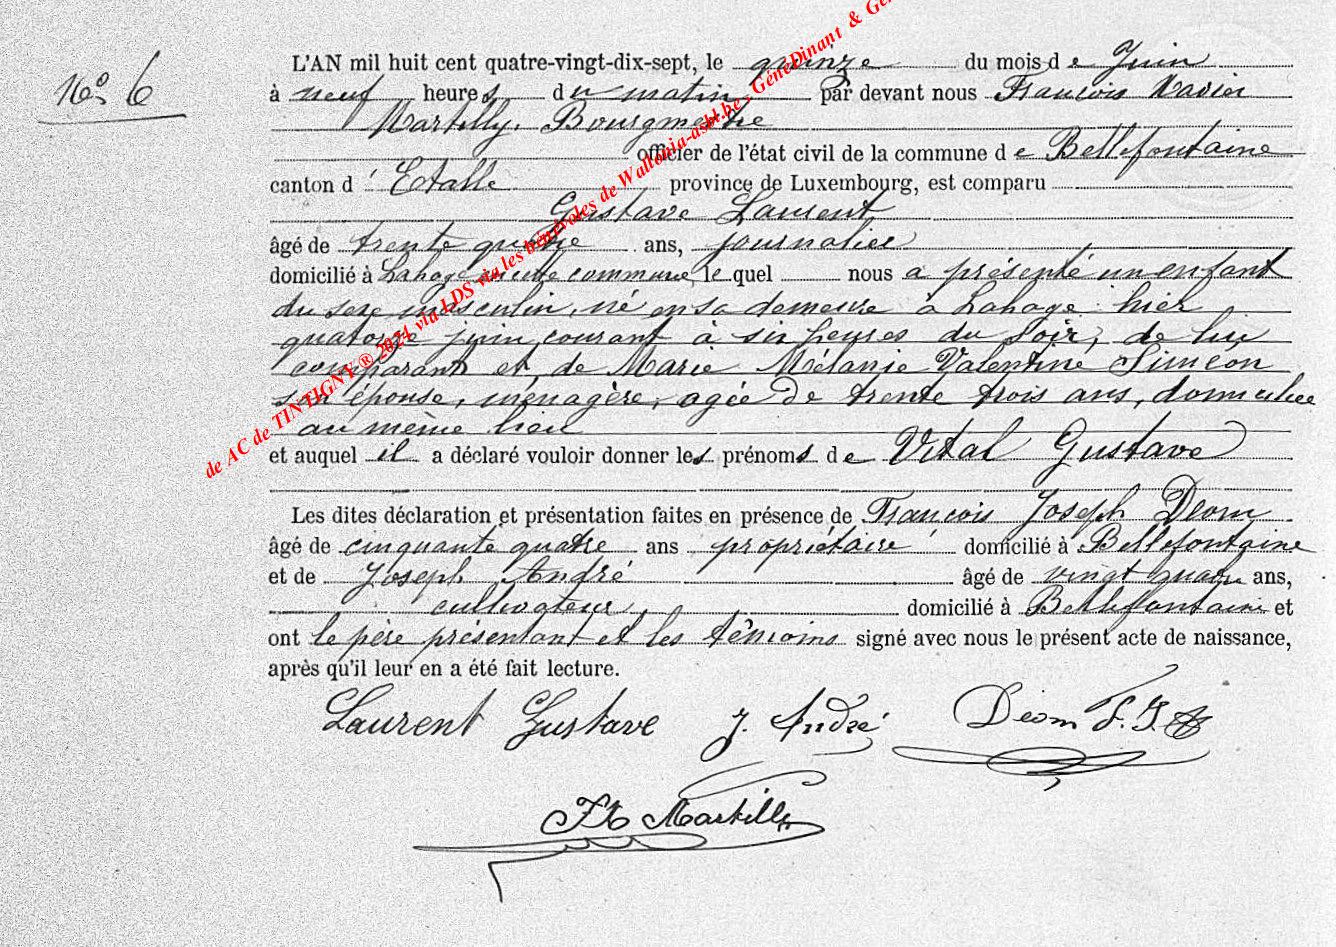 No 6
L'AN mil huit cent quatre-vingt-dix-sept, le quinze du mois de Juin
à neuf heures du matin par devant nous François Xavier
Martilly, Bourgmestre
officier de l'état civil de la commune de Bellefontaine
canton d' Etalle province de Luxembourg, est comparu
Gustave Laurent
âgé de trente quatre ans, journalier
domicilié à Lahage en cette commune, le quel nous a présenté un enfant
du sexe masculin, né en sa demeure à Lahage hier
quatorze juin courant à six heures du soir, de lui
comparant et de Marie Mélanie Valentine Simeon
son épouse, ménagère, agée de trente trois ans, domiciliée
au même lieu
et auquel il a déclaré vouloir donner les prénoms de Vital Gustave
Les dites déclaration et présentation faites en présence de François Joseph Deom
âgé de cinquante quatre ans propriétaire domicilié à Bellefontaine
et de Joseph André âgé de vingt quatre ans,
cultivateur, domicilié à Bellefontaine et
ont le père présentant et les témoins signé avec nous le présent acte de naissance,
après qu'il leur en a été fait lecture.
Laurent Gustave J. André Deom F. J.
FX Martilly
de AC de TINTIGNY ® 2024 via LDS via les bénévoles de Wallonia-asbl.be - GénéDinant & Gé